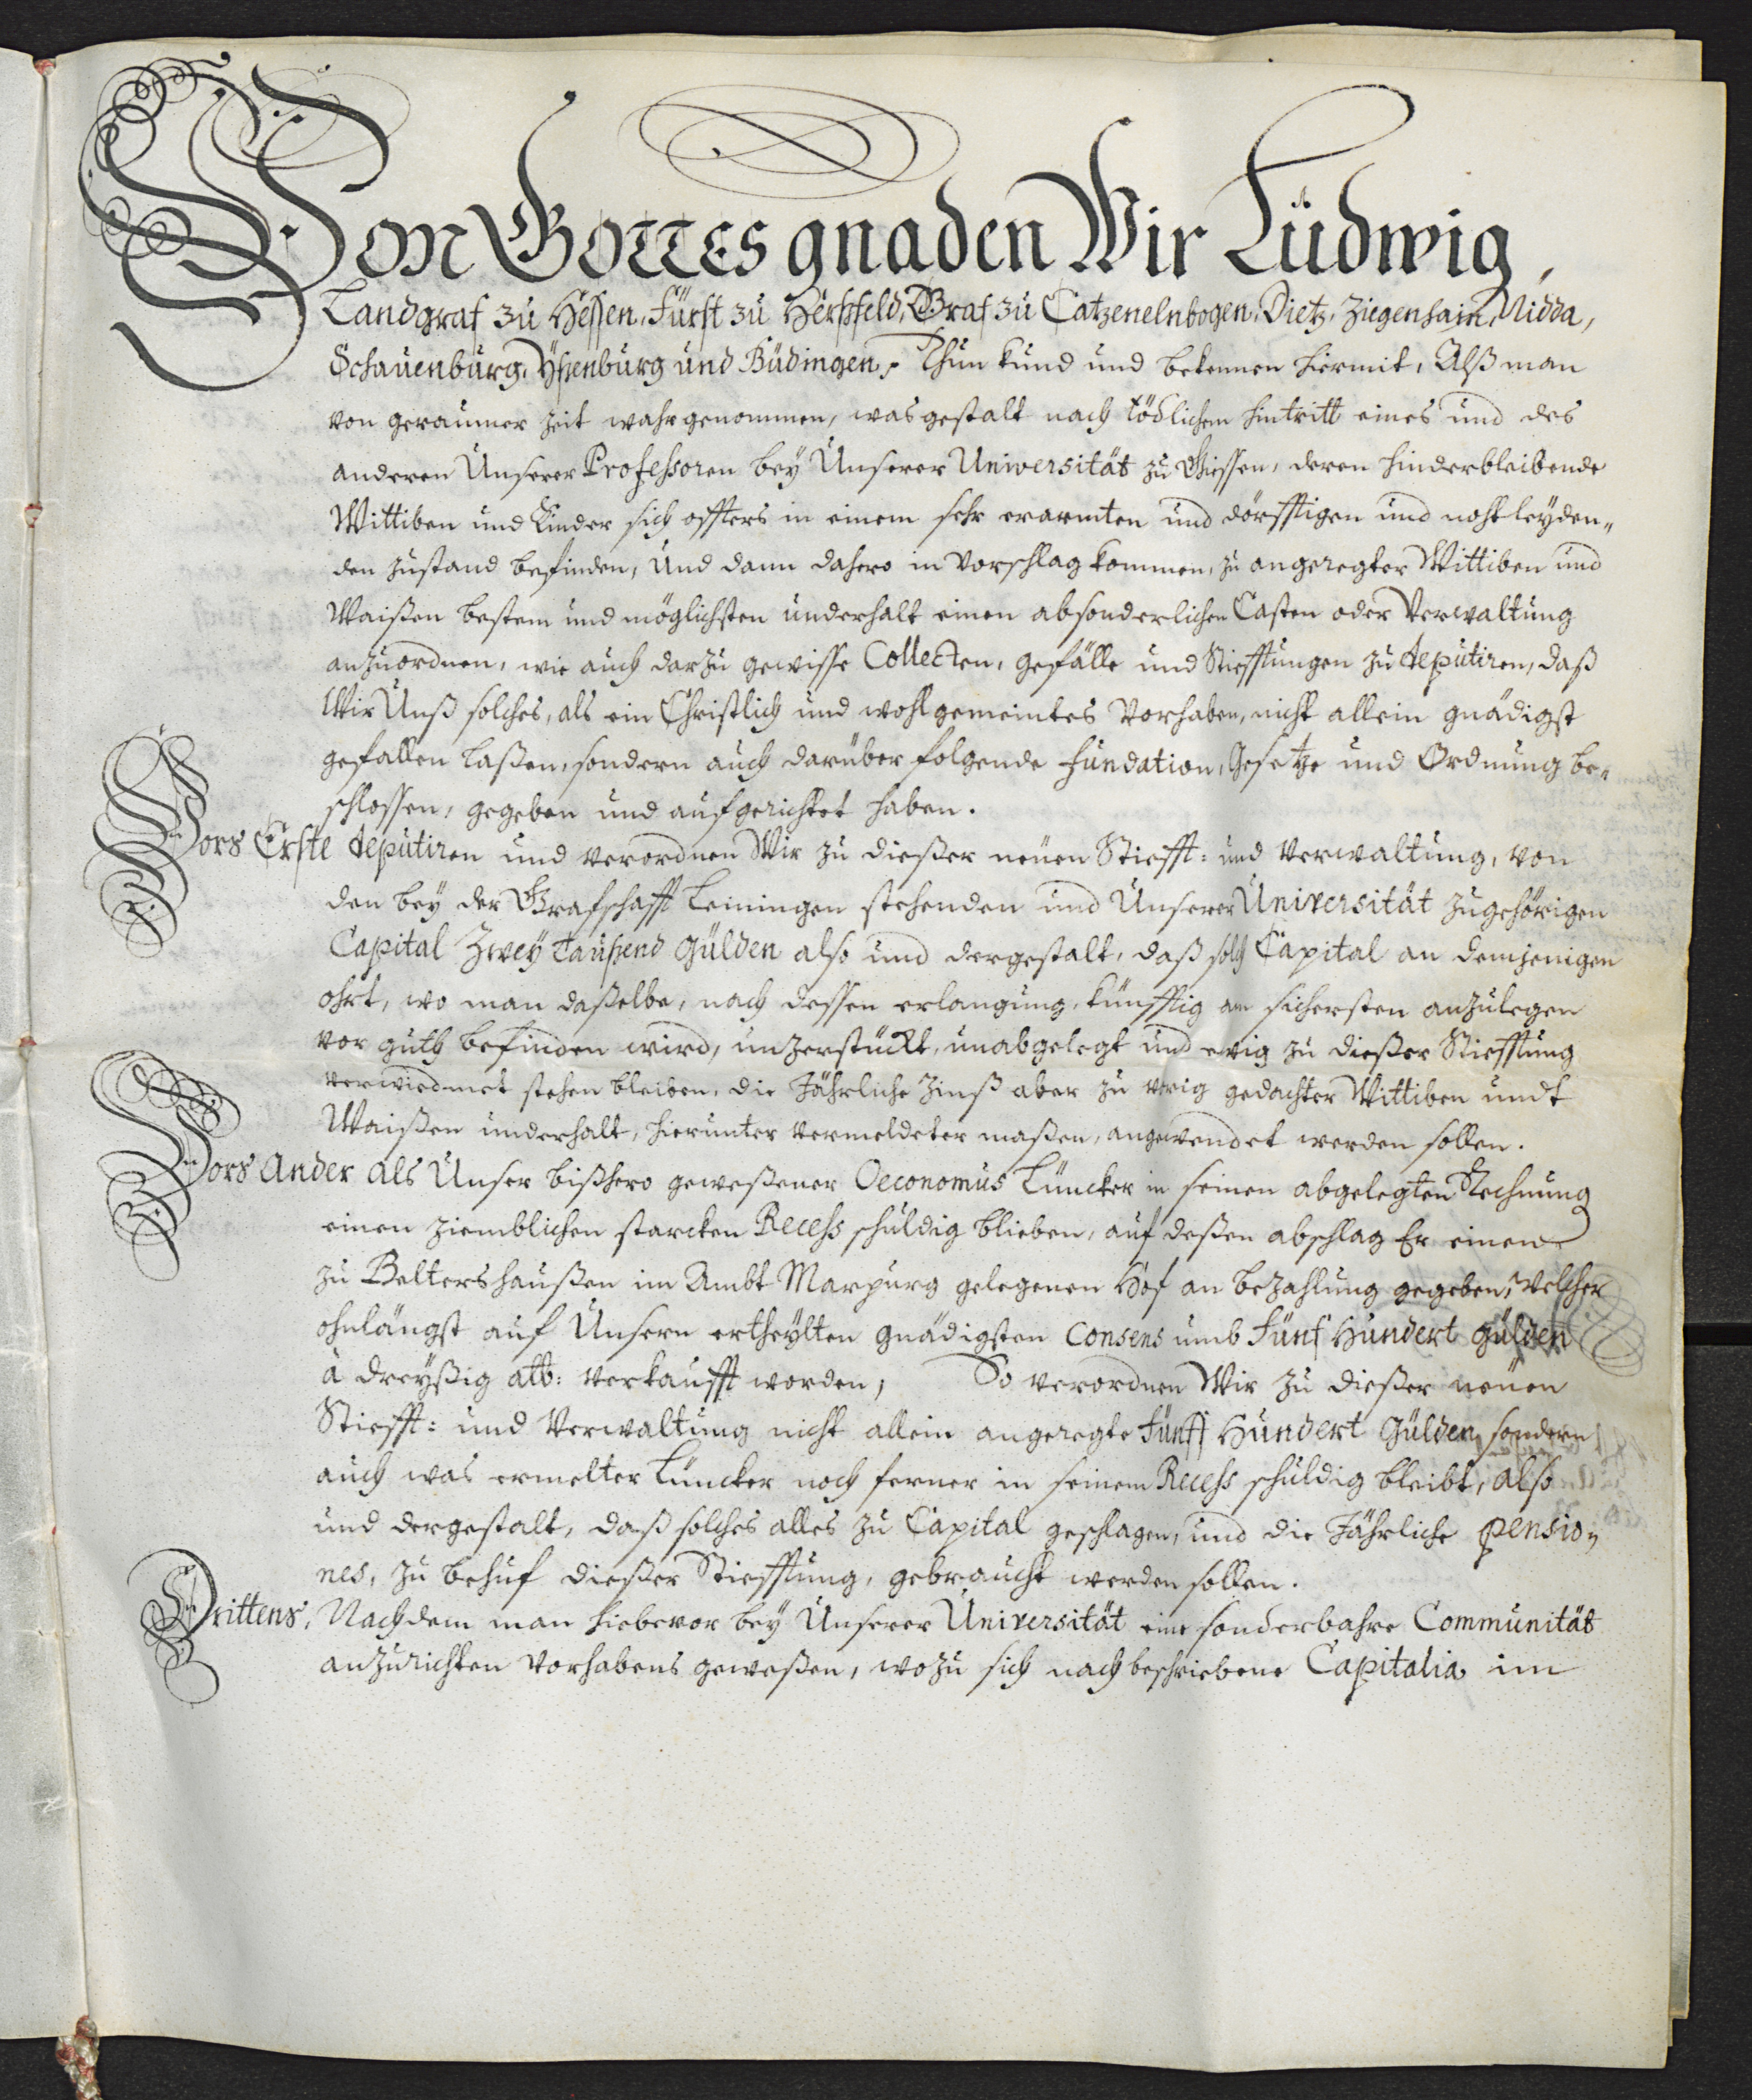 Von Gottes gnaden Wir Ludwig,
Landgraf zu Hessen, Fürst zu Herßfeld, Graf zu Catzenelnbogen, Dietz, Ziegenhain, Nidda,
Schauenburg, Yßenburg und Büdingen, Thun kund und bekennen hiermit, Alß man
von geraumer zeit wahrgenommen, was gestalt nach tödlichem hintritt eines und des
anderen Unserer Professoren bey Unserer Universität zu Giessen, deren hinderbleibende
Wittiben und Kinder sich offters in einem sehr erarmten und dörfftigen und nohtleyden„
den zustand befinden, Und dann dahero in vorschlag kommen, zu angeregter Wittiben und
Waißen bestem und möglichsten underhalt einen absonderlichen Casten oder Verwaltung
anzuordnen, wie auch darzu gewisse Collecten, gefälle und Stifftungen zu deputiren, daß
Wir Unß solches, als ein Christlich und wohlgemeintes Vorhaben, nicht allein gnädigst
gefallen laßen, sondern auch darüber folgende fundation, Gesetze und Ordnung be„
schlossen, gegeben und aufgerichtet haben.
Vors Erste deputiren und verordnen Wir zu dießer neuen Stifft: und Verwaltung, von
den bey der Grafschafft Leiningen stehenden und Unserer Universität zugehörigen
Capital Zwey Taußend Gülden also und dergestalt, daß solch Capital an demjenigen
ohrt, wo man daßelbe, nach dessen erlangung, künfftig am sichersten anzulegen
vor guth befinden wird, unzerstückt, unabgelegt und ewig zu dießer Stifftung
verwiedmet stehen bleiben, die Jährliche Zinß aber zu vorig gedachter Wittiben undt
Waißen underhalt, hierunter vermeldeter maßen, angewendet werden sollen.
Vors Ander als Unser bißhero geweßener Oeconomus Lüncker in seinen abgelegten Rechnung
einen ziemblichen starcken Recess schuldig blieben, auf deßen abschlag Er einen
zu Beltershaußen im Ambt Marpurg gelegenen Hof an bezahlung gegeben, Welcher
ohnlängst auf Unsern ertheylten gnädigsten Consens umb Fünf Hundert Gülden
à dreyßig alb: verkaufft worden, So verordnen Wir zu dießer neuen
Stifft: und Verwaltung nicht allein angeregte Fünff Hundert Gülden, sondern
auch was ermelter Lüncker noch ferner in seinem Recess schuldig bleibt, also
und dergestalt, daß solches alles zu Capital geschlagen, und die Jährliche pensio„
nes, zu behuf dießer Stifftung, gebraucht werden sollen.
Drittens, Nachdem man hiebevor bey Unserer Universität eine sonderbahre Communität
anzurichten Vorhabens geweßen, wozu sich nachbeschriebene Capitalia im